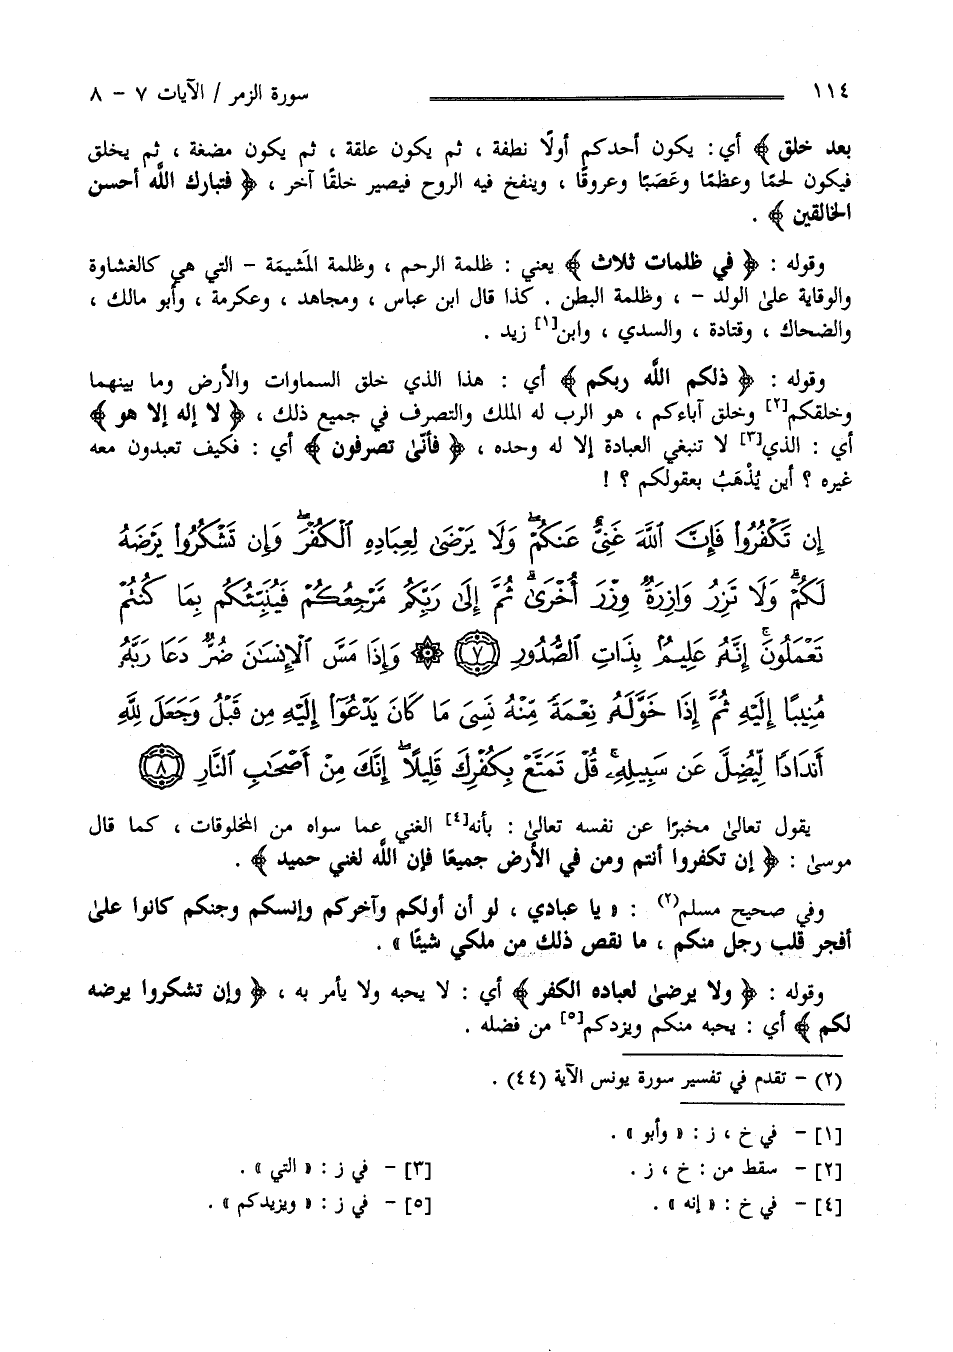 ١١٤ سورة الزمر / الآيات ٧ - ٨
بعد خلق ﴾ أي: يكون أحدكم أولًا نطفة ، ثم يكون علقة ، ثم يكون مضغة ، ثم يخلق
فيكون لحمًا وعظمًا وعَصَبًا وعروقًا ، وينفخ فيه الروح فيصير خلقًا آخر ، ﴿ فتبارك الله أحسن
الخالقين ﴾ .
وقوله : ﴿ في ظلمات ثلاث ﴾ يعني : ظلمة الرحم ، وظلمة المَشيمَة - التي هي كالغشاوة
والوقاية علىٰ الولد - ، وظلمة البطن . كذا قال ابن عباس ، ومجاهد ، وعكرمة ، وأبو مالك ،
والضحاك ، وقتادة ، والسدي ، وابن[١] زيد .
وقوله : ﴿ ذلكم اللَّه ربكم ﴾ أي : هذا الذي خلق السماوات والأرض وما بينهما
وخلقكم[٢] وخلق آباءكم ، هو الرب له الملك والتصرف في جميع ذلك ، ﴿ لا إله إلا هو ﴾
أي : الذي[٣] لا تنبغي العبادة إلا له وحده ، ﴿ فأنّىٰ تصرفون ﴾ أي : فكيف تعبدون معه
غيره ؟ أين يُذْهَبُ بعقولكم ؟ !
إِن تَكْفُرُوا۟ فَإِنَّ ٱللَّهَ غَنِىٌّ عَنكُمْ ۖ وَلَا يَرْضَىٰ لِعِبَادِهِ ٱلْكُفْرَ ۖ وَإِن تَشْكُرُوا۟ يَرْضَهُ
لَكُمْ ۗ وَلَا تَزِرُ وَازِرَةٌ وِزْرَ أُخْرَىٰ ۗ ثُمَّ إِلَىٰ رَبِّكُم مَّرْجِعُكُمْ فَيُنَبِّئُكُم بِمَا كُنتُمْ
تَعْمَلُونَ ۚ إِنَّهُۥ عَلِيمٌۢ بِذَاتِ ٱلصُّدُورِ ٧ ۞ وَإِذَا مَسَّ ٱلْإِنسَٰنَ ضُرٌّ دَعَا رَبَّهُۥ
مُنِيبًا إِلَيْهِ ثُمَّ إِذَا خَوَّلَهُۥ نِعْمَةً مِّنْهُ نَسِىَ مَا كَانَ يَدْعُوٓا۟ إِلَيْهِ مِن قَبْلُ وَجَعَلَ لِلَّهِ
أَندَادًا لِّيُضِلَّ عَن سَبِيلِهِۦ ۚ قُلْ تَمَتَّعْ بِكُفْرِكَ قَلِيلًا ۖ إِنَّكَ مِنْ أَصْحَٰبِ ٱلنَّارِ ٨
يقول تعالىٰ مخبرًا عن نفسه تعالىٰ : بأنه[٤] الغني عما سواه من المخلوقات ، كما قال
موسىٰ : ﴿ إن تكفروا أنتم ومن في الأرض جميعًا فإن اللَّه لغني حميد ﴾ .
وفي صحيح مسلم(٢) : « يا عبادي ، لو أن أولكم وآخركم وإنسكم وجنكم كانوا علىٰ
أفجر قلب رجل منكم ، ما نقص ذلك من ملكي شيئًا » .
وقوله : ﴿ ولا يرضىٰ لعباده الكفر ﴾ أي : لا يحبه ولا يأمر به ، ﴿ وإن تشكروا يرضه
لكم ﴾ أي : يحبه منكم ويزدكم[٥] من فضله .
(٢) - تقدم في تفسير سورة يونس الآية (٤٤) .
[١] - في خ ، ز : « وأبو » .
[٢] - سقط من : خ ، ز . [٣] - في ز : « التي » .
[٤] - في خ : « إنه » . [٥] - في ز : « ويزيدكم » .